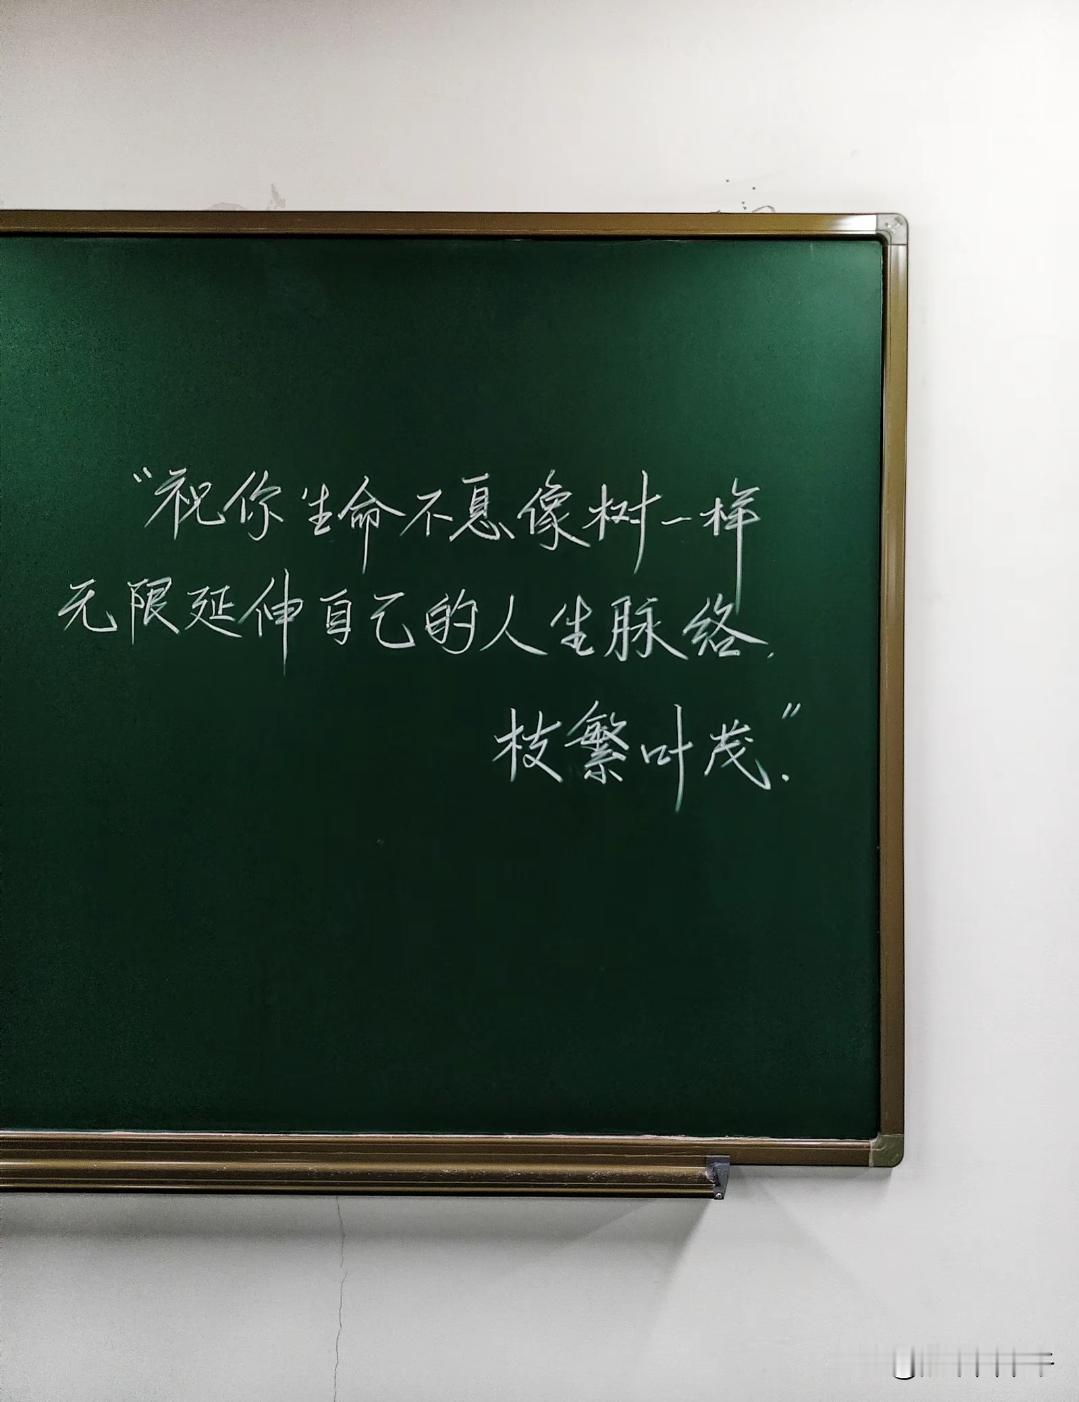 “祝你生命不息像树一样
无限延伸自己的人生脉络.
枝繁叶茂.”